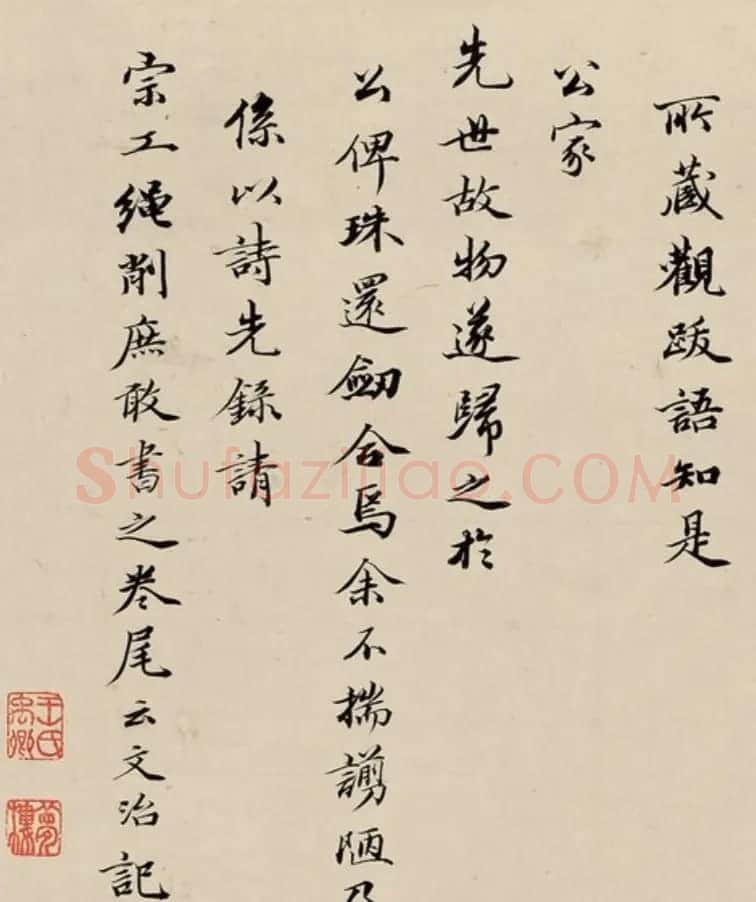 所藏觀跋語知是
公家
先世故物遂歸之於
公俾珠還劒合焉余不揣謭陋乃
係以詩先錄請
宗工繩削庶敢書之卷尾云文治記
王氏禹卿
夢樓
Shufaziliao.COM